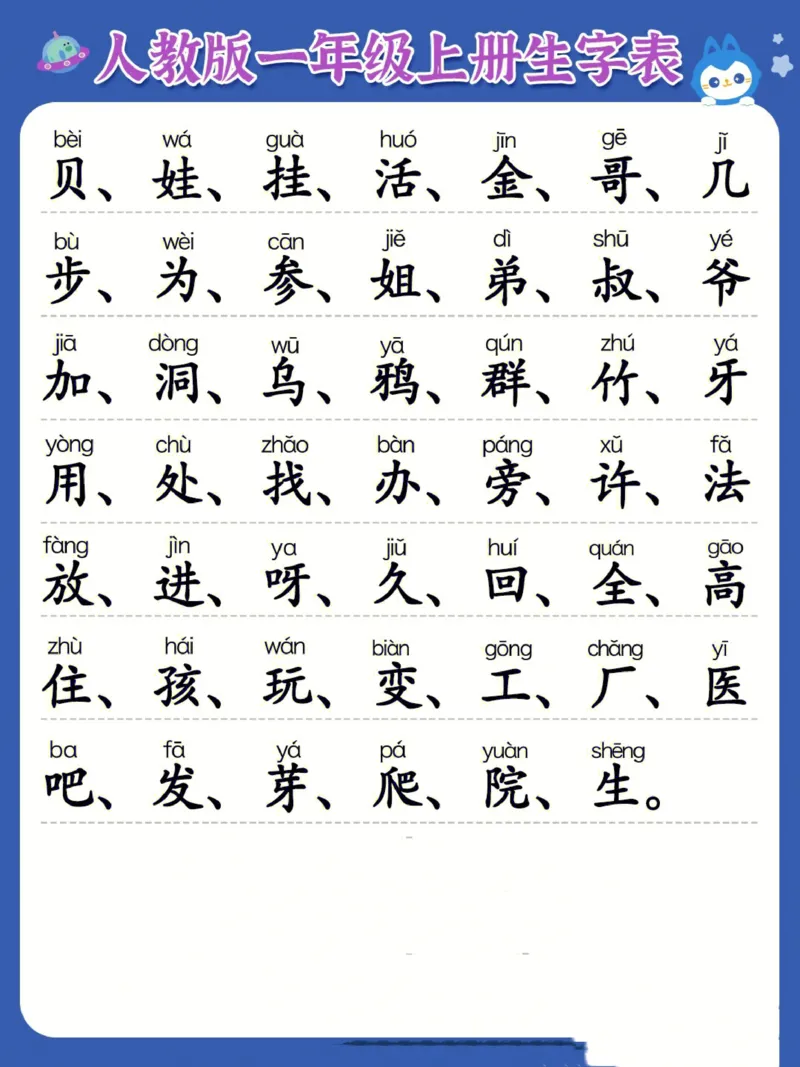 人教版一年级上册生字表
bèi wá guà huó jīn gē jǐ
贝、娃、挂、活、金、哥、几
bù wèi cān jiě dì shū yé
步、为、参、姐、弟、叔、爷
jiā dòng wū yā qún zhú yá
加、洞、乌、鸦、群、竹、牙
yòng chù zhǎo bàn páng xǔ fǎ
用、处、找、办、旁、许、法
fàng jìn ya jiǔ huí quán gāo
放、进、呀、久、回、全、高
zhù hái wán biàn gōng chǎng yī
住、孩、玩、变、工、厂、医
ba fā yá pá yuàn shēng
吧、发、芽、爬、院、生。